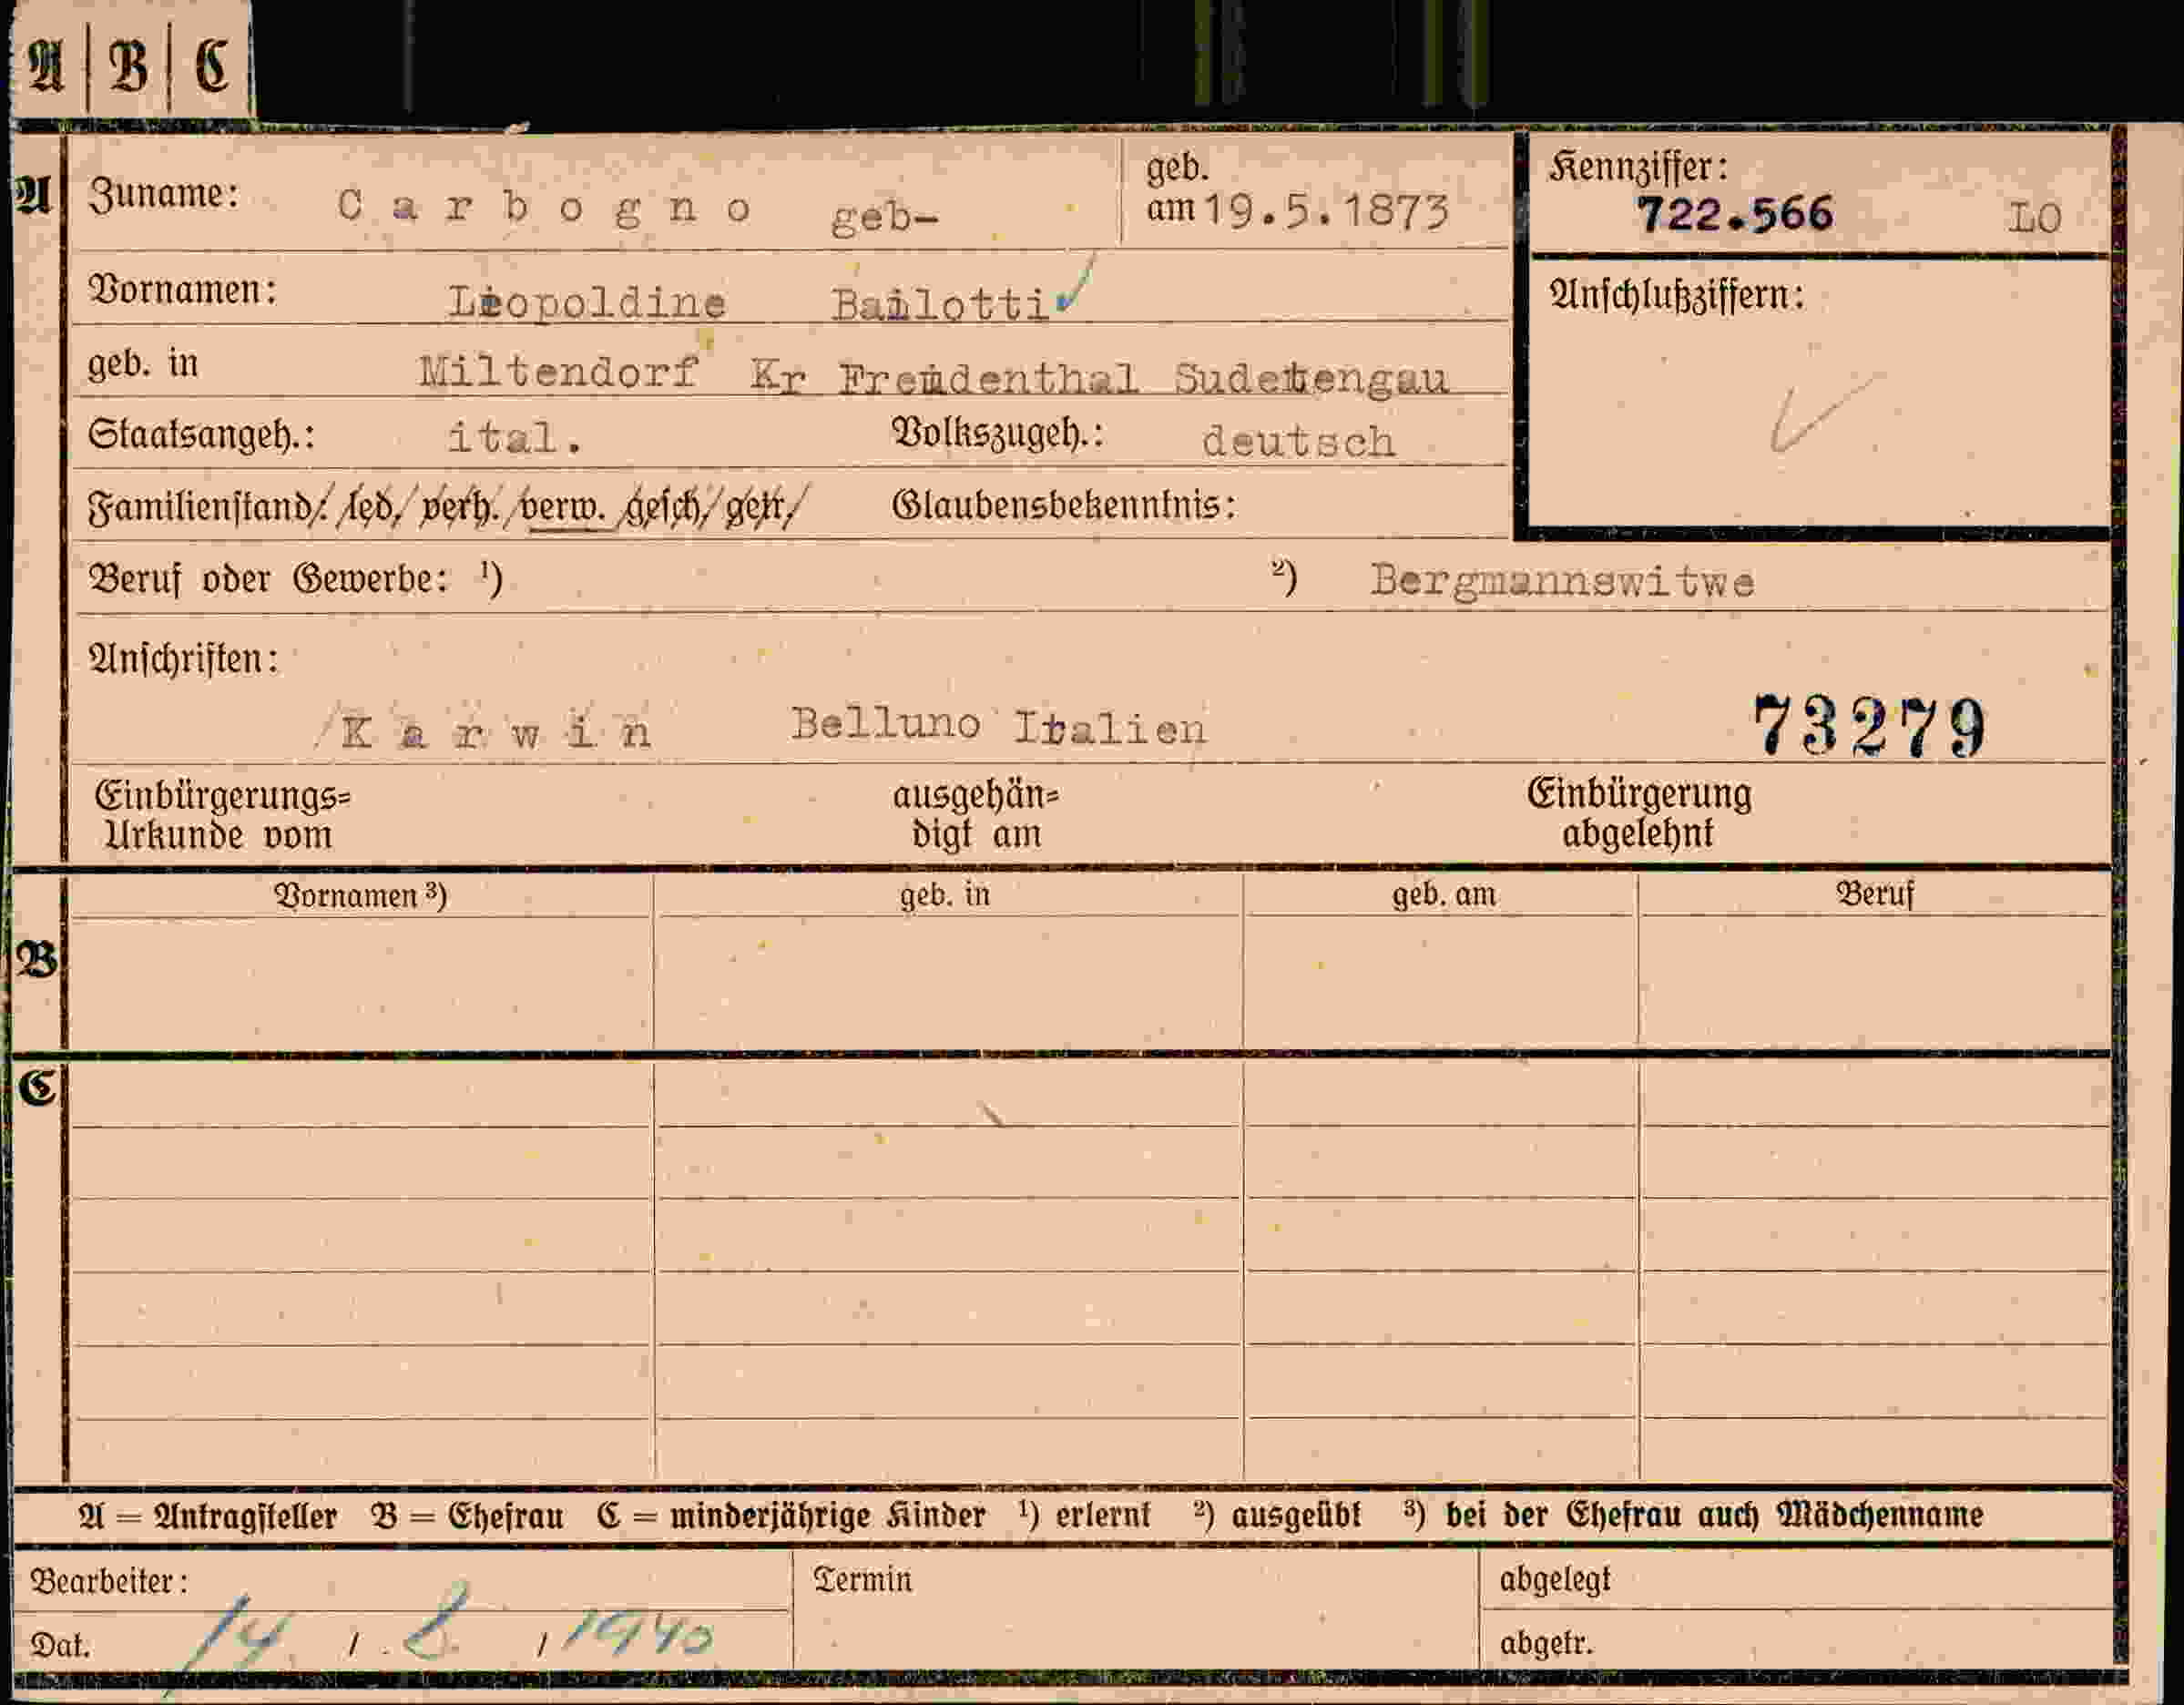 A | B | C
A Zuname: Carbogno geb- geb. am 19.5.1873 Kennziffer: 722.566 LO
Vornamen: Leopoldine Bailotti Anschlußziffern:
geb. in Miltendorf Kr Freudenthal Sudetengau
Staatsangeh.: ital. Volkszugeh.: deutsch
Familienstand: led. verh. verw. gesch. getr. Glaubensbekenntnis:
Beruf oder Gewerbe: ¹) ²) Bergmannswitwe
Anschriften:
Karwin Belluno Italien 73279
Einbürgerungs= ausgehän= Einbürgerung
Urkunde vom digt am abgelehnt
Vornamen ³) geb. in geb. am Beruf
B
C
A = Antragsteller B = Ehefrau C = minderjährige Kinder ¹) erlernt ²) ausgeübt ³) bei der Ehefrau auch Mädchenname
Bearbeiter: Termin abgelegt
Dat. 14 / 8 / 1940 abgetr.